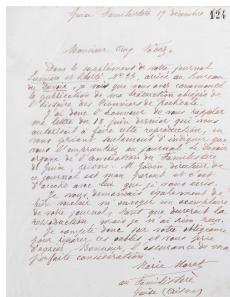 Guise Familistère 17 décembre
124
Monsieur
Dans le supplément de votre journal
N° 33, arrivé au bureau
du Devoir, je vois que vous avez commencé
la publication de ma traduction abrégée de
l'histoire des Pionniers de Rochdale.
J'ai donc l'honneur de vous rappeler
ma lettre du 18 dernier qui vous
autorisait à faire cette reproduction, en
vous priant seulement d'indiquer que
vous l'empruntiez au journal le Devoir
organe de l'association du Familistère
de Guise,
ce journal est mon parent et c'est
d'accord avec lui que
Je vous demandais également de
bien vouloir m'envoyer un exemplaire
de votre journal,
reproduction mais je n'ai rien reçu.
Je compte donc sur votre obligeance
pour réparer ces oublis et vous prie
d'agréer, Monsieur, l'assurance de ma
parfaite considération
Marie Moret
au Familistère
Guise (Aisne)